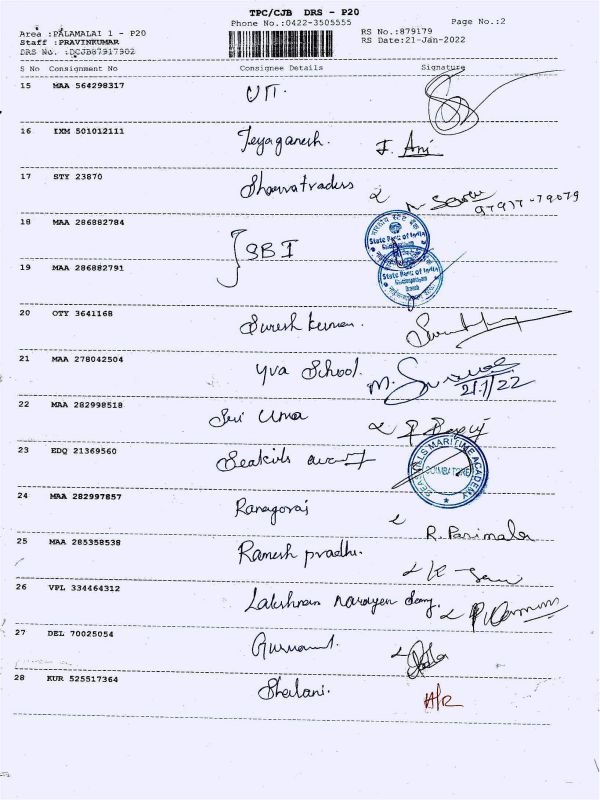 TPC/CJB DRS - P20
Phone No.:0422-3505555
Page No.:2
Area :PALAMALAI 1 - P20
RS No.:879179
Staff :PRAVINKUMAR
RS Date:21-Jan-2022
DRS No. :DCJB87917902
S No Consignment No Consignee Details Signature
15 MAA 564298317
16 IXM 501012111 Jeyaganesh. J. Ani
17 STY 23870
97917-79079
18 MAA 286882784 SBI
State Bank of India
19 MAA 286882791
State Bank of India
Branch
20 OTY 3641168 Suresh kumar.
21 MAA 278042504 Yva School. M.
21/1/22
22 MAA 282998518 Sri Uma
23 EDQ 21369560
SEASKILLS MARITIME ACADEMY
COIMBATORE
24 MAA 282997857
R. Parimala
25 MAA 285358538 Ramesh
26 VPL 334464312 Lakshman narayen
27 DEL 70025054
28 KUR 525517364 Sheilani.